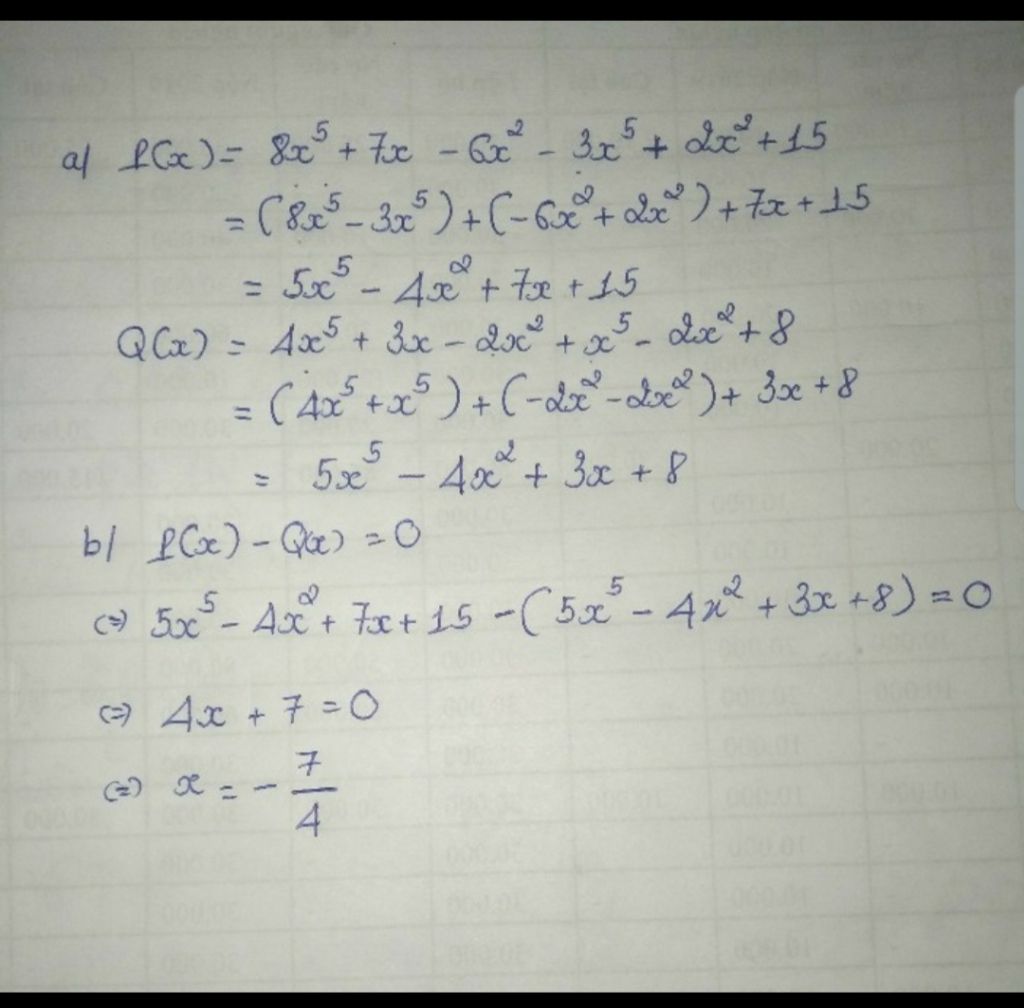 a/ P(x) = 8x⁵ + 7x - 6x² - 3x⁵ + 2x² + 15
= (8x⁵ - 3x⁵) + (-6x² + 2x²) + 7x + 15
= 5x⁵ - 4x² + 7x + 15
Q(x) = 4x⁵ + 3x - 2x² + x⁵ - 2x² + 8
= (4x⁵ + x⁵) + (-2x² - 2x²) + 3x + 8
= 5x⁵ - 4x² + 3x + 8
b/ P(x) - Q(x) = 0
(=) 5x⁵ - 4x² + 7x + 15 - (5x⁵ - 4x² + 3x + 8) = 0
(=) 4x + 7 = 0
(=) x = - 7/4